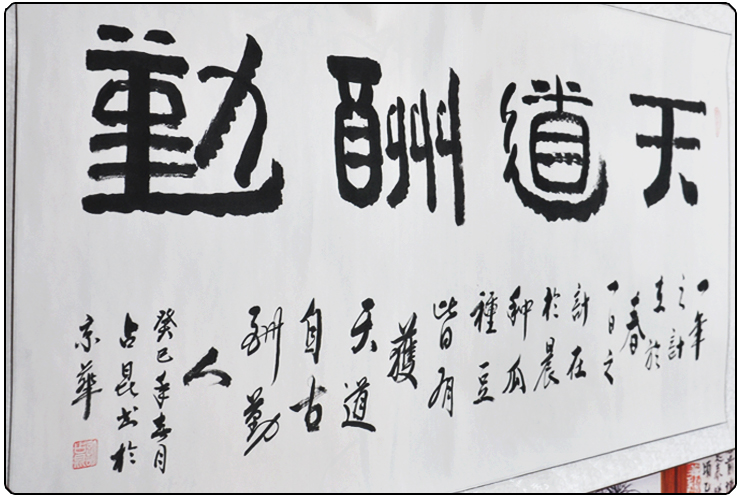 天道酬勤
一年
之計
在於
春
一日之
計在
於晨
种瓜
種豆
皆有
獲
天道
自古
酬勤
人
癸巳年春月
占昆书於
京華